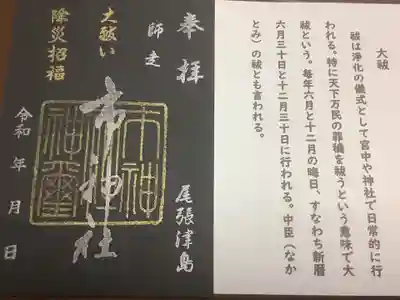 大祓
祓は浄化の儀式として宮中や神社で日常的に行
われる。特に天下万民の罪穢を祓うという意味で大
祓という。毎年六月と十二月の晦日、すなわち新暦
六月三十日と十二月三十日に行われる。中臣（なか
とみ）の祓とも言われる。
奉拝
尾張津島
師走
市神社
大祓い
除災招福
令和 年 月 日